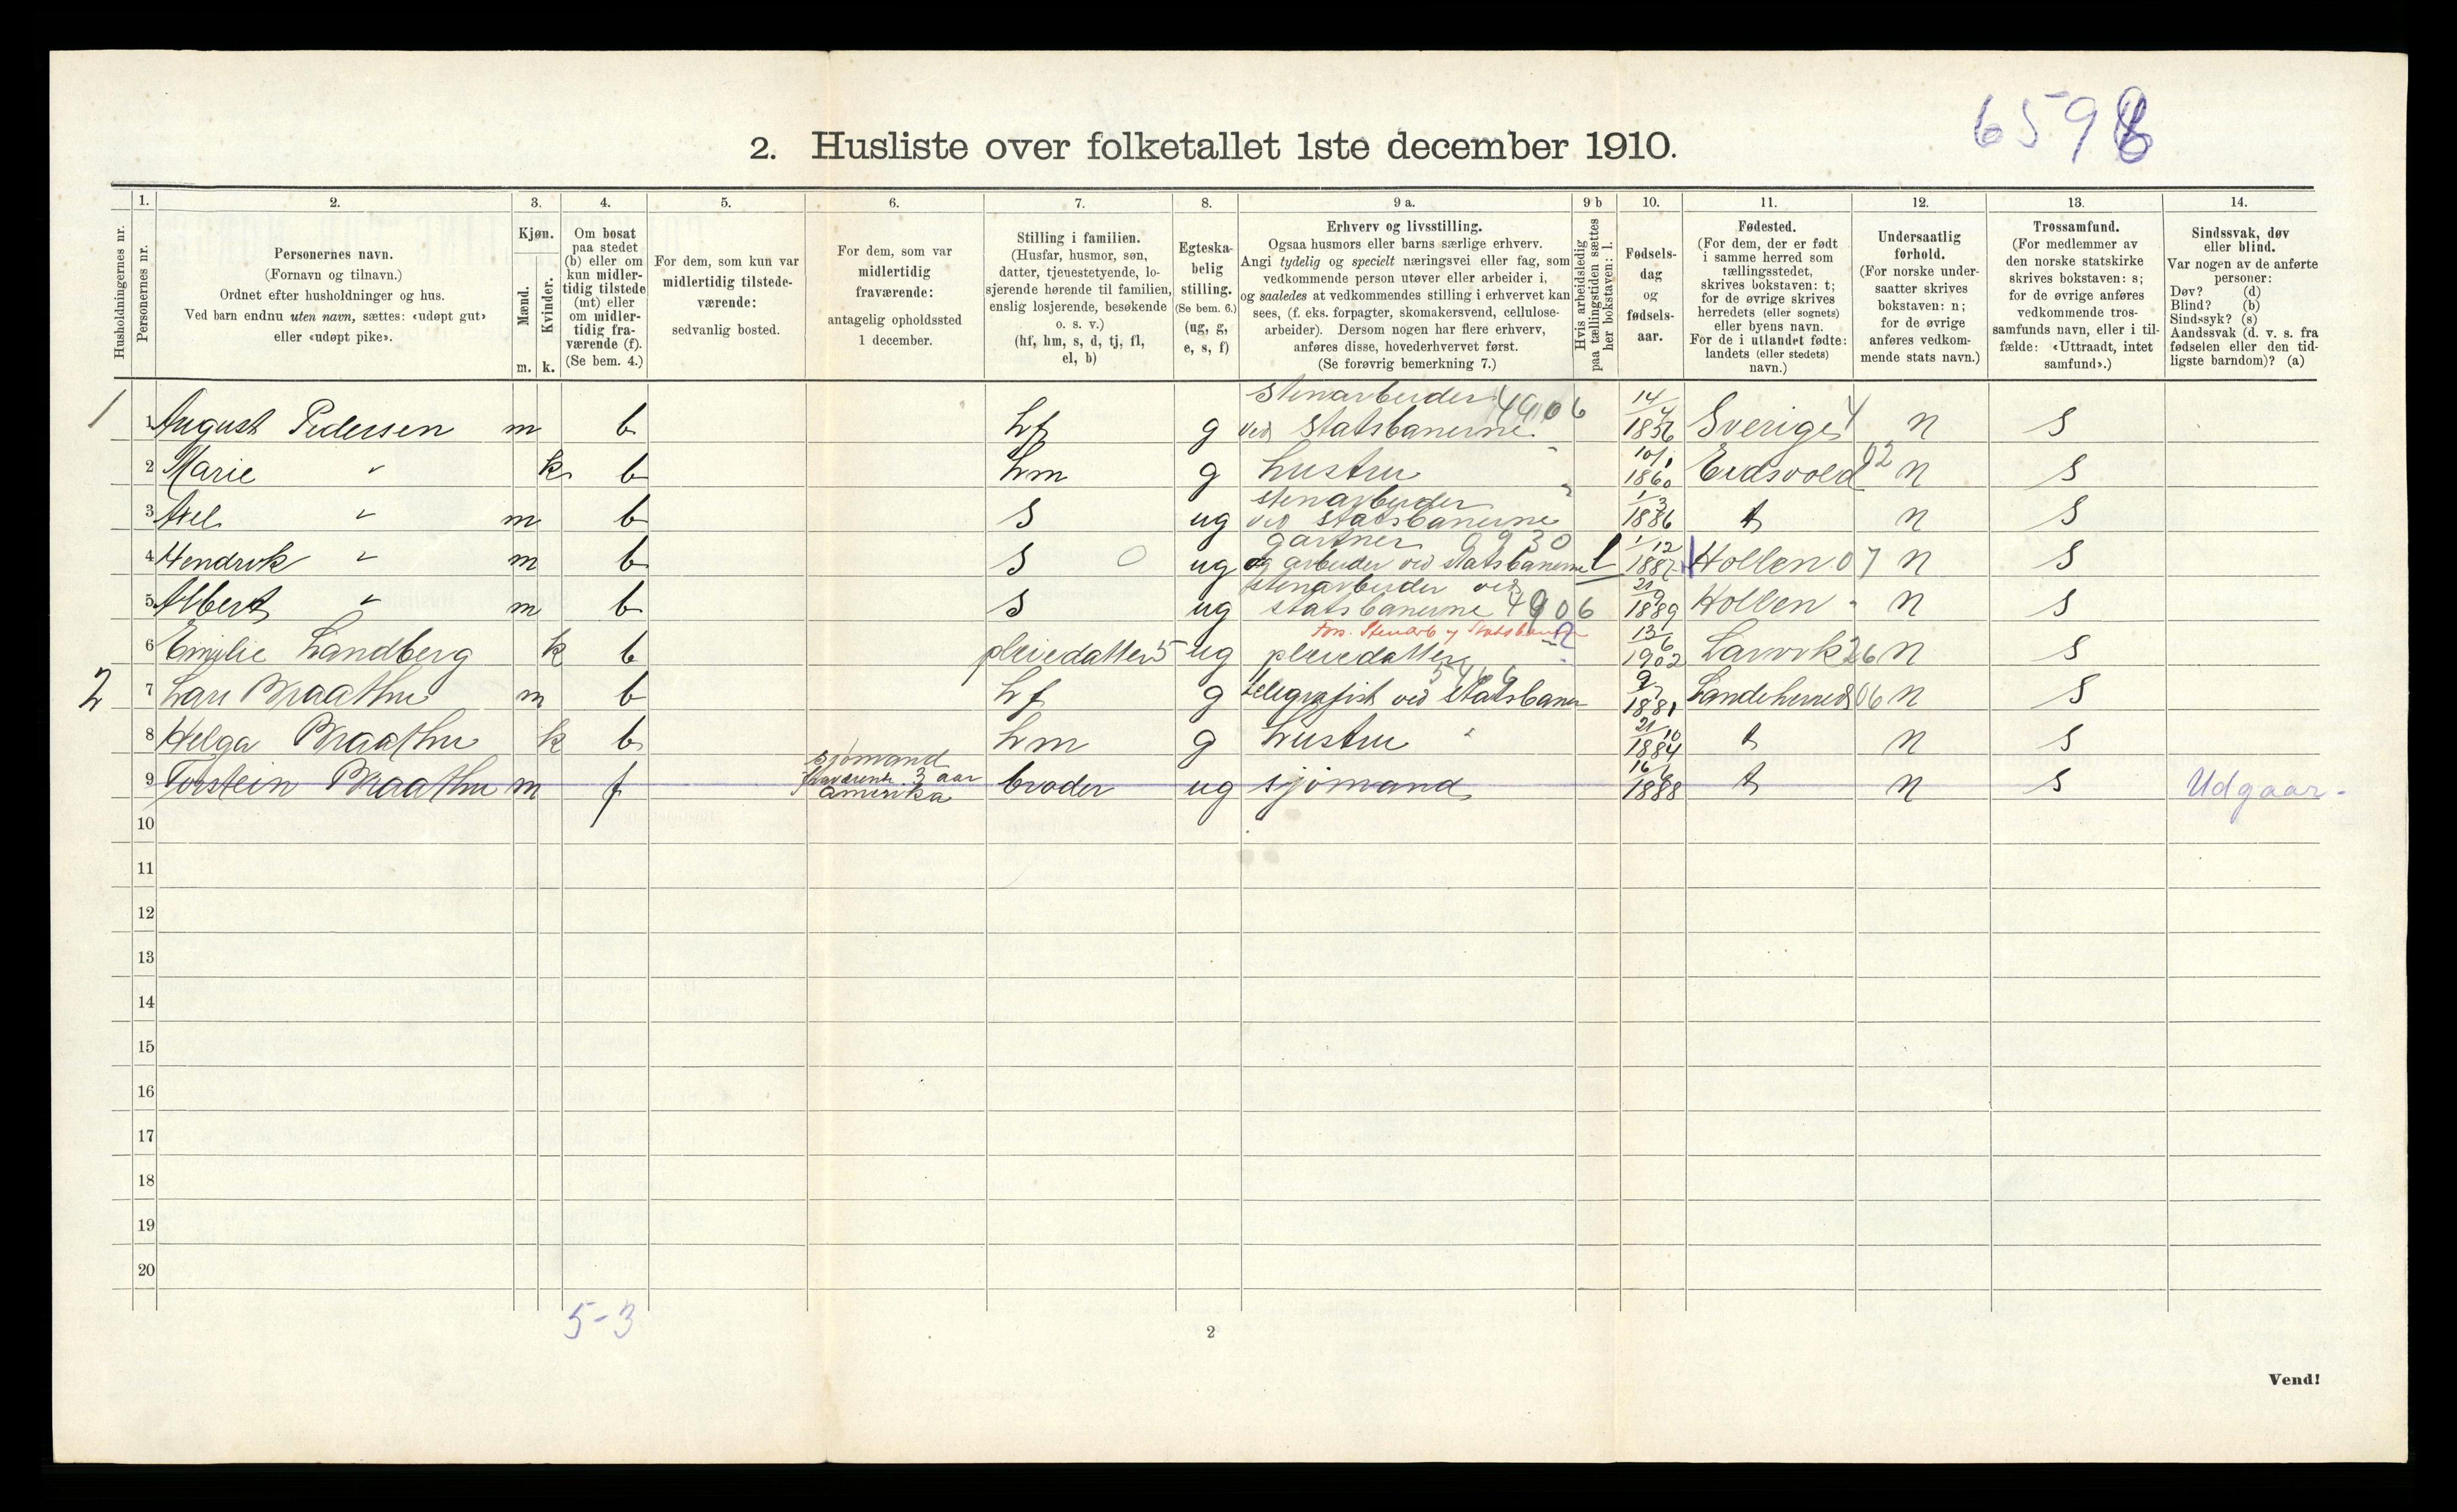 6598
2. Husliste over folketallet 1ste december 1910.
Husholdningernes nr.
1. Personernes nr.
2. Personernes navn.
(Fornavn og tilnavn.)
Ordnet efter husholdninger og hus.
Ved barn endnu uten navn, sættes: «udøpt gut»
eller «udøpt pike».
3. Kjøn.
Mænd. m.
Kvinder. k.
4. Om bosat
paa stedet
(b) eller om
kun midler-
tidig tilstede
(mt) eller
om midler-
tidig fra-
værende (f).
(Se bem. 4.)
5. For dem, som kun var
midlertidig tilstede-
værende:
sedvanlig bosted.
6. For dem, som var
midlertidig
fraværende:
antagelig opholdssted
1 december.
7. Stilling i familien.
(Husfar, husmor, søn,
datter, tjenestetyende, lo-
sjerende hørende til familien,
enslig losjerende, besøkende
o. s. v.)
(hf, hm, s, d, tj, fl,
el, b)
8. Egteska-
belig
stilling.
(Se bem. 6.)
(ug, g,
e, s, f)
9 a. Erhverv og livsstilling.
Ogsaa husmors eller barns særlige erhverv.
Angi tydelig og specielt næringsvei eller fag, som
vedkommende person utøver eller arbeider i,
og saaledes at vedkommendes stilling i erhvervet kan
sees, (f. eks. forpagter, skomakersvend, cellulose-
arbeider). Dersom nogen har flere erhverv,
anføres disse, hovederhvervet først.
(Se forøvrig bemerkning 7.)
9 b Hvis arbeidsledig
paa tællingstiden sættes
her bokstaven: l.
10. Fødsels-
dag
og
fødsels-
aar.
11. Fødested.
(For dem, der er født
i samme herred som
tællingsstedet,
skrives bokstaven: t;
for de øvrige skrives
herredets (eller sognets)
eller byens navn.
For de i utlandet fødte:
landets (eller stedets)
navn.)
12. Undersaatlig
forhold.
(For norske under-
saatter skrives
bokstaven: n;
for de øvrige
anføres vedkom-
mende stats navn.)
13. Trossamfund.
(For medlemmer av
den norske statskirke
skrives bokstaven: s;
for de øvrige anføres
vedkommende tros-
samfunds navn, eller i til-
fælde: «Uttraadt, intet
samfund».)
14. Sindssvak, døv
eller blind.
Var nogen av de anførte
personer:
Døv? (d)
Blind? (b)
Sindssyk? (s)
Aandssvak (d. v. s. fra
fødselen eller den tid-
ligste barndom)? (a)
1 1 August Pedersen m b hf g stenarbeider 4906 ved statsbanerne 14/4 1856 Sverige 4 n s
2 Marie " k b hm g hustru " 10/1 1860 Eidsvold 02 n s
3 Axel " m b s ug stenarbeider ved statsbanerne " 1/3 1886 t n s
4 Hendrik " m b s 0 ug gartner 0930 og arbeider ved statsbanerne l 1/12 1887 Hollen 07 n s
5 Albert " m b s ug stenarbeider ved statsbanerne 4906 21/9 1889 Hollen " n s
6 Emilie Landberg k b pleiedatter 5 ug Fors. Stenarb v Statsbanen pleiedatter 13/6 1902 Larvik 26 n s
2 7 Lars Braathu m b hf g 5466 telegrafist ved Statsbaner 9/7 1881 Landeherred 06 n s
8 Helga Braathu k b hm g hustru " 21/10 1884 t n s
9 Torstein Braathu m f sjømand fraværende 3 aar amerika broder ug sjømand 16/6 1888 t n s Udgaar.
10
11
12
13
14
15
16
17
18
19
20
5-3
2
Vend!